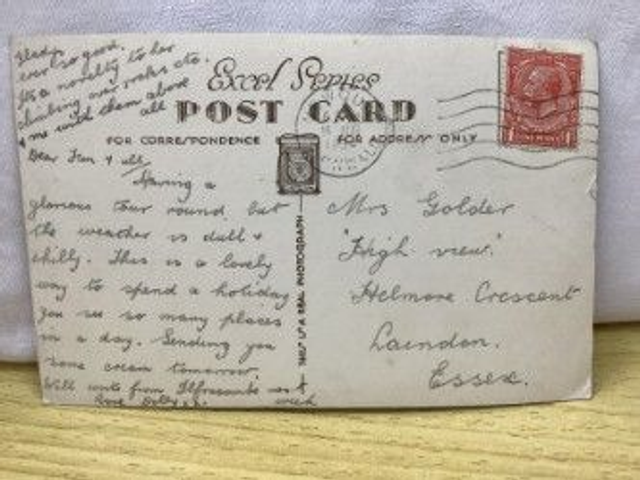 Gladys
ever so good.
Its a novelty to her
climbing over rocks etc.
& me wild them above
all
Excel Series
POST CARD
FOR CORRESPONDENCE
FOR ADDRESS ONLY
Dear Fran & all,
Having a
glorious tour round but
the weather is dull &
chilly. This is a lovely
way to spend a holiday
you see so many places
in a day. Sending you
some cream tomorrow.
Will write from Ilfracombe
week
Love Dolly
THIS IS A REAL PHOTOGRAPH
Mrs Golder
"High view."
Helmore Crescent
Laindon.
Essex.